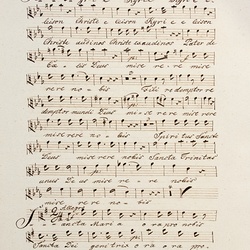 Kyrie Kyrie e
leison Christe e leison Kyrie e leison
Christe audinos Christe exaudinos Pater de
Cælis Deus mise re re mise
rere nobis Fili redemptor re
demptor mundi Deus mise re re mise rere
mise rere nobis Spiritus Sancte
Deus mise rere nobis Sancta Trinitas
unus Deus mise re re nobis
Sancta Maria ora pro nobis
Sancta Dei genitrix o ra ora pro